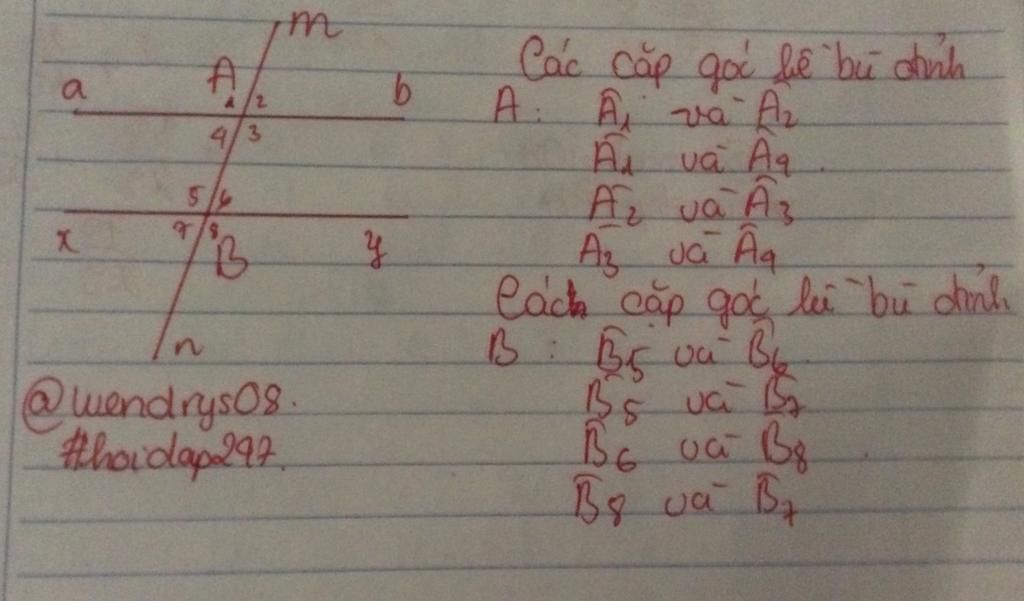 m
a A b
1 2
4 3
5 6
x 7 8 B y
n
@wendrys08.
#hoidap247.
Các cặp góc kề bù đỉnh
A: A1 và A2
A1 và A4
A2 và A3
A3 và A4
Các cặp góc kề bù đỉnh
B: B5 và B6
B5 và B7
B6 và B8
B8 và B7